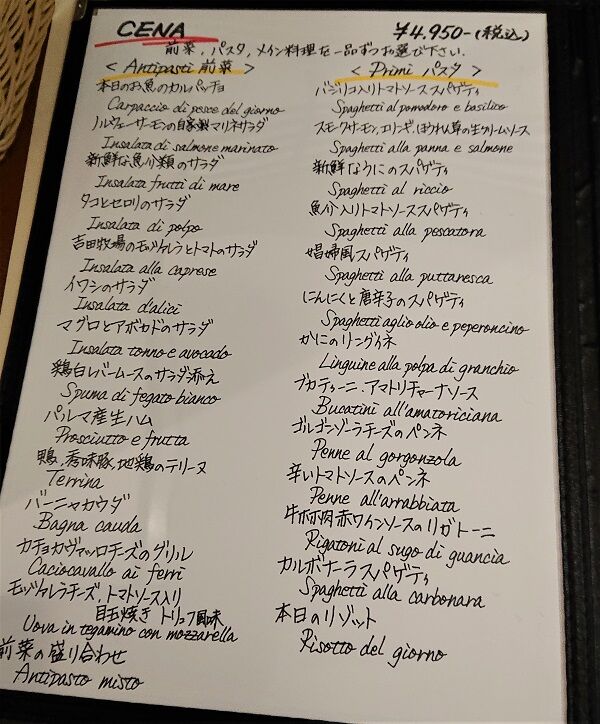 CENA
¥4,950-(税込)
前菜、パスタ、メイン料理を一品ずつお選び下さい.
< Antipasti 前菜 >
本日のお魚のカルパッチョ
Carpaccio di pesce del giorno
ノルウェーサーモンの自家製マリネサラダ
Insalata di salmone marinato
新鮮な魚介類のサラダ
Insalata frutti di mare
タコとセロリのサラダ
Insalata di polpo
吉田牧場のモッツァレラとトマトのサラダ
Insalata alla caprese
イワシのサラダ
Insalata d'alici
マグロとアボカドのサラダ
Insalata tonno e avocado
鶏白レバームースのサラダ添え
Spuma di fegato bianco
パルマ産生ハム
Prosciutto e frutta
鴨、秀味豚、地鶏のテリーヌ
Terrina
バーニャカウダ
Bagna cauda
カチョカヴァッロチーズのグリル
Caciocavallo ai ferri
モッツァレラチーズ、トマトソース入り
目玉焼き トリュフ風味
Uova in tegamino con mozzarella
前菜の盛り合わせ
Antipasto misto
< Primi パスタ >
バジリコ入りトマトソース スパゲティ
Spaghetti al pomodoro e basilico
スモークサーモン、エリンギ、ほうれん草の生クリームソース
Spaghetti alla panna e salmone
新鮮なうにのスパゲティ
Spaghetti al riccio
魚介入りトマトソーススパゲティ
Spaghetti alla pescatora
娼婦風スパゲティ
Spaghetti alla puttaresca
にんにくと唐辛子のスパゲティ
Spaghetti aglio olio e peperoncino
かにのリングイネ
Linguine alla polpa di granchio
ブカティーニ、アマトリチャーナソース
Bucatini all'amatoriciana
ゴルゴンゾーラチーズのペンネ
Penne al gorgonzola
辛いトマトソースのペンネ
Penne all'arrabbiata
牛ホホ肉赤ワインソースのリガトーニ
Rigatoni al sugo di guancia
カルボナーラスパゲティ
Spaghetti alla carbonara
本日のリゾット
Risotto del giorno